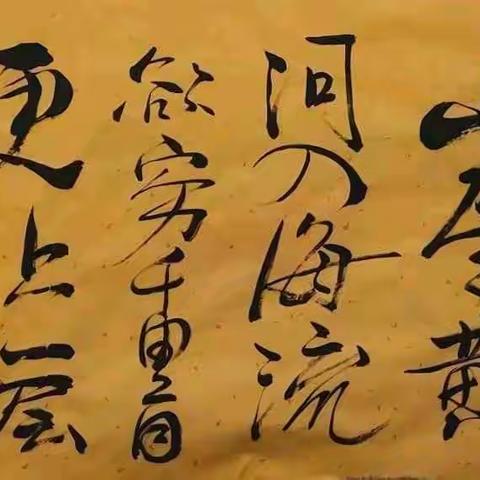 山尽黄
河入海流
欲穷千里目
更上一层